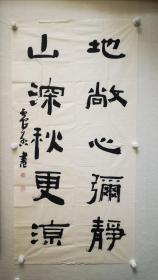 地敞心彌靜
山深秋更凉
書